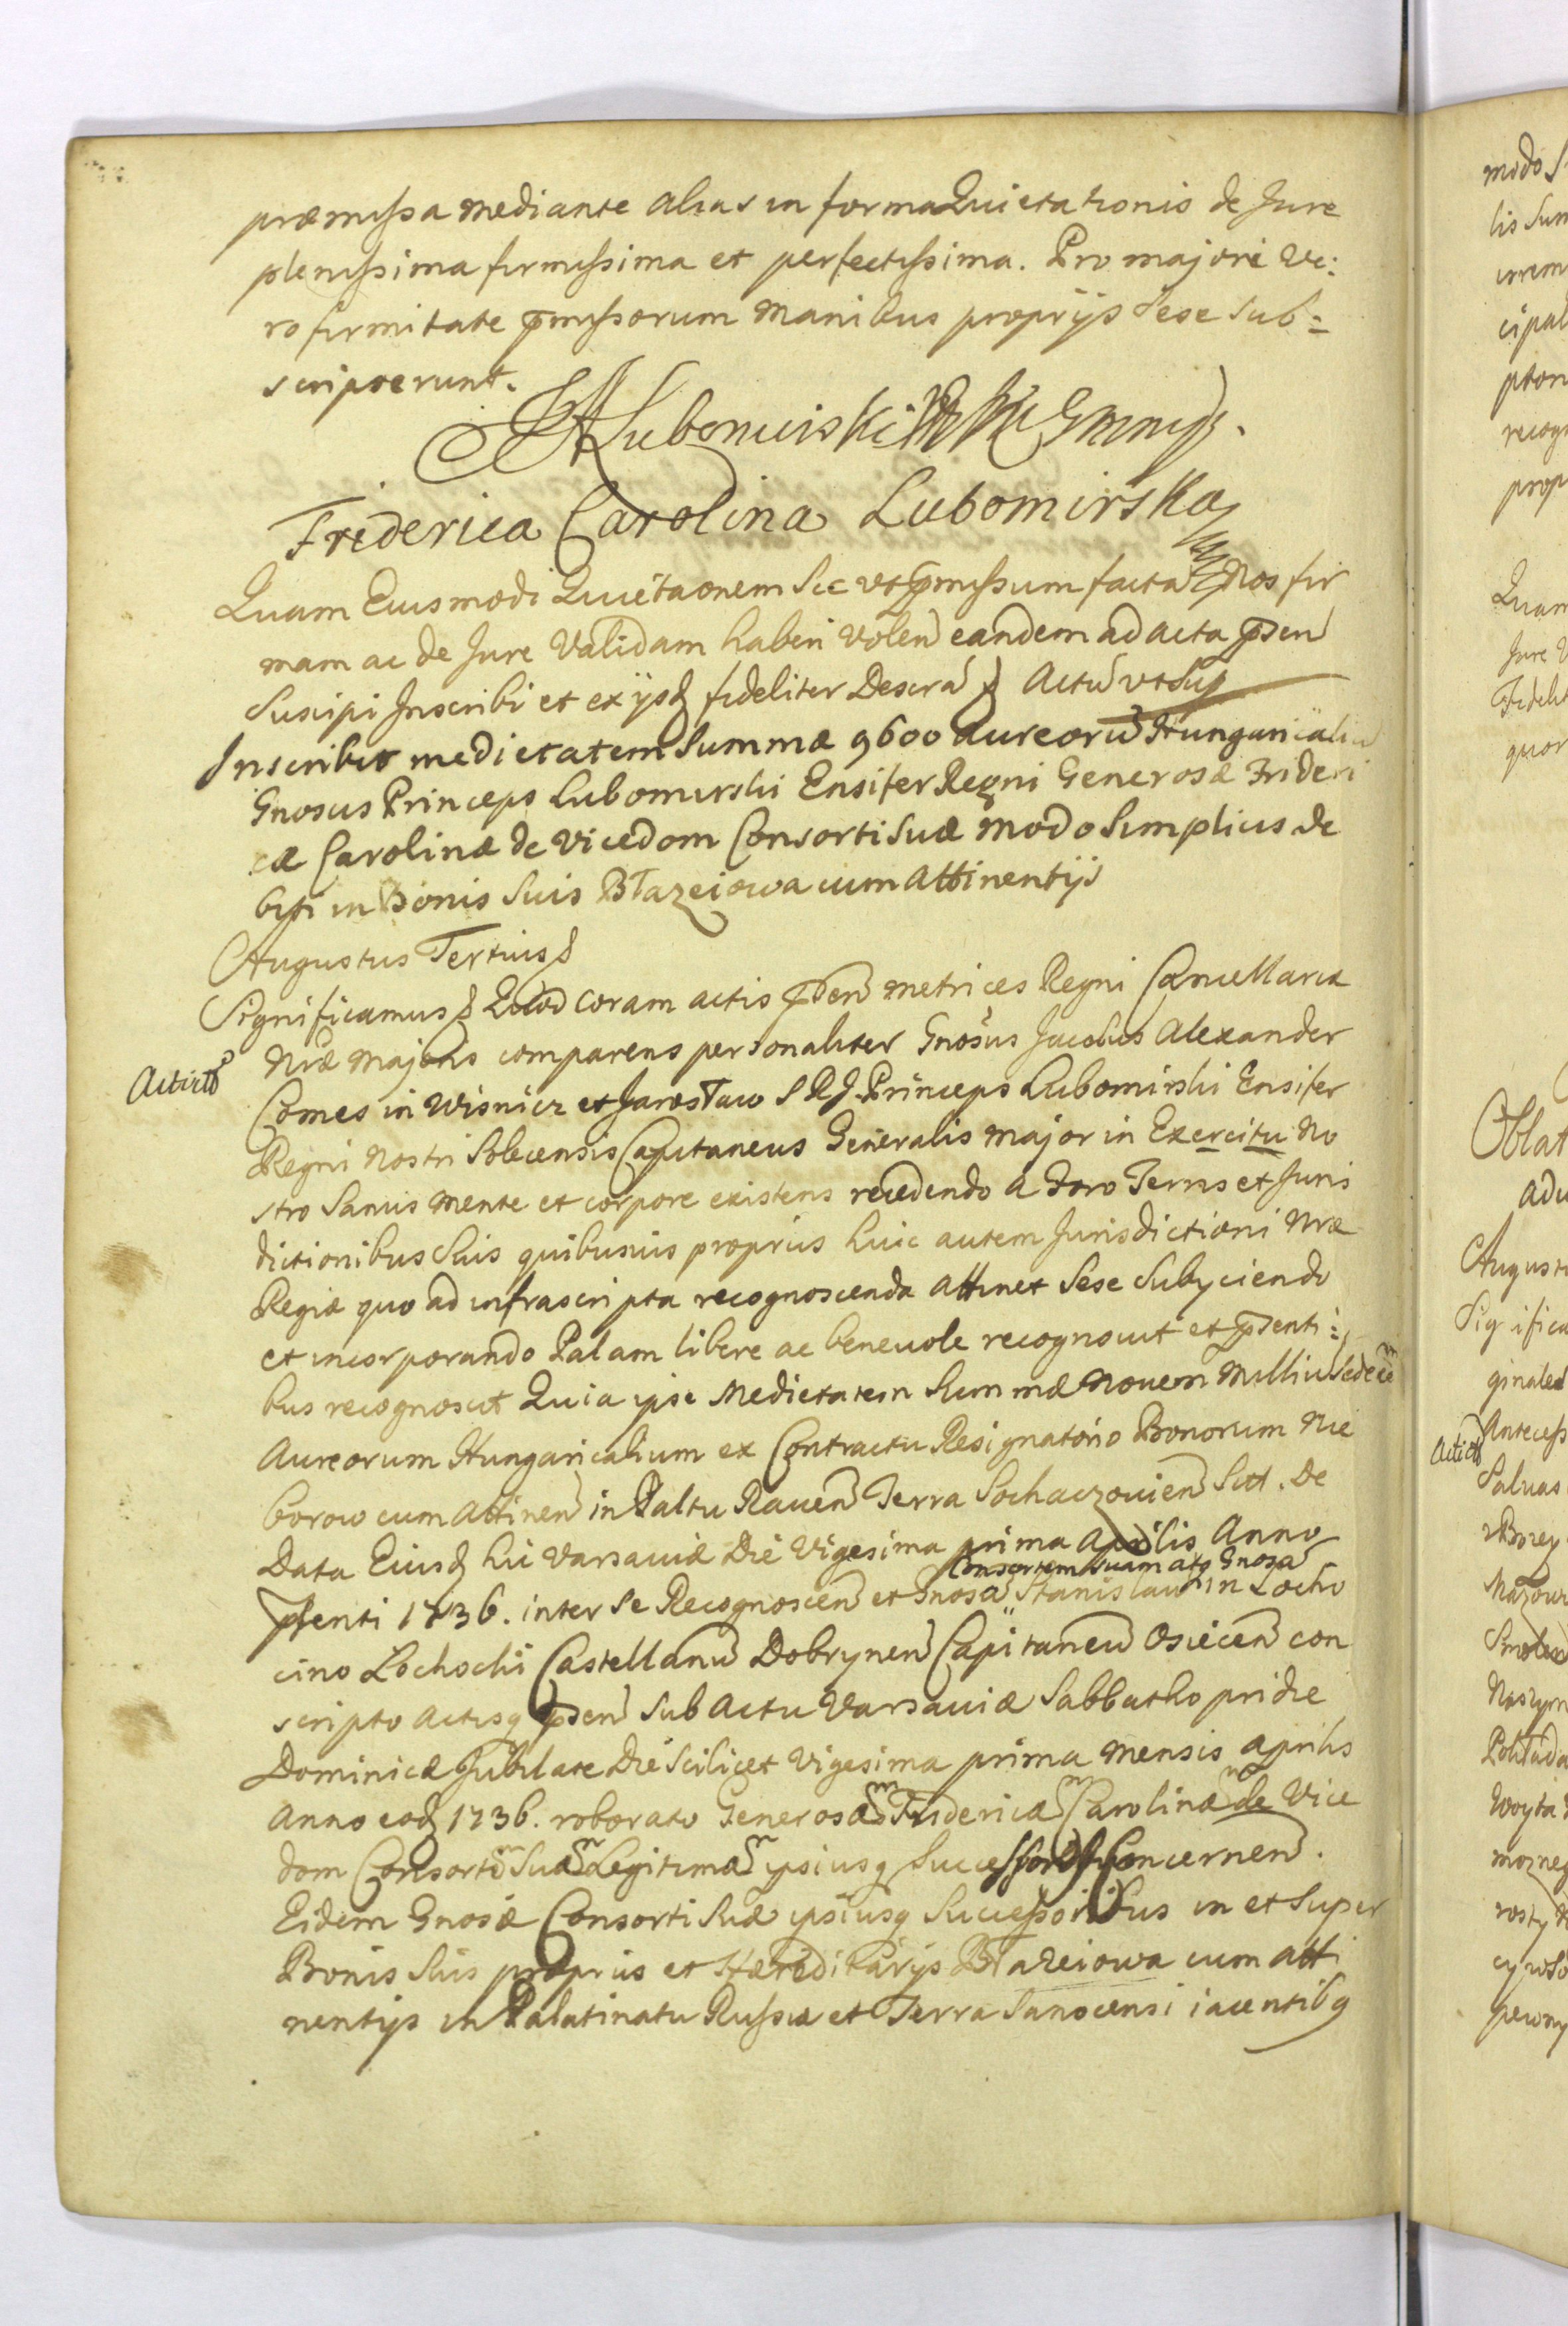 præmissa mediante alias in forma Quietationis de Jure
plenissima firmissima et perfectissima. Pro majori ve:
ro firmitate pmissorum manibus proprijs sese sub=
scripserunt.
Lubomirski
Friderica Carolina Lubomirska
Quam Eiusmodi Quietaonem sic vt pmissum facta Nos fir
mam ac de Jure Validam haberi volen eandem ad acta psen
suscipi Inscribi et ex ijsd fideliter Describi Actu vt sup
Inscribit medietatem summæ 9600 aureorū Hungaricaliū
Gnosus Princeps Lubomirski Ensifer Regni Generosæ Frideri
cæ Carolinæ de Vicedom Consorti suæ modo simplicis de
biti in Bonis suis Błazeiowa cum Attinentijs
Augustus Tertius
Significamus Quod coram actis psen metrices Regni Cancellariæ
Nræ majoris comparens personaliter Gnosus Jacobus Alexander
Acticto
Comes in Wisnicz et Jarosław S R J. Princeps Lubomirski Ensifer
Regni Nostri Solecensis Capitaneus Generalis major in Exercitu No
stro Sanus mente et corpore existens recedendo a Foro Terris et Juris
dictionibus suis quibusvis proprijs huic autem Jurisdictioni Nræ
Regiæ quo ad infrascripta recognoscenda attinet sese subijciendo
et incorporando Palam libere ac beneuole recognouit et psenti:
bus recognoscit Quia ipse Medietatem Summæ Nouem Milliū Sedecē
Aureorum Hungaricalium ex Contractu Resignatorio Bonorum Nie
borow cum Attinen in Paltu Rauen Terra Sochaczouien Sitt. De
Data Eiusd hic Varsauiæ Die Vigesima prima Aprilis Anno
Consortem suam atq Gnosū
psenti 1736. inter se Recognoscen et Gnosū Stanislaū in Locho
cino Lochocki Castellanū Dobrynen Capitaneū Osiecen con
scripto actisq psen sub actu Varsauiæ Sabbatho pridie
Dominicæ Jubilate Die scilicet Vigesima prima mensis aprilis
Anno eod 1736. roborato Generosæm Fridericæm Carolinæm de Vice
dom Consortēm Suæm Legitimæm ipsiusq Successores Concernen.
Eidem Gnosæ Consorti suæ ipsiusq Successoribus in et super
Bonis suis proprijs et Hæreditarijs Błazeiowa cum atti
nentijs in Palatinatu Russiæ et Terra Sanocensi iacentibq